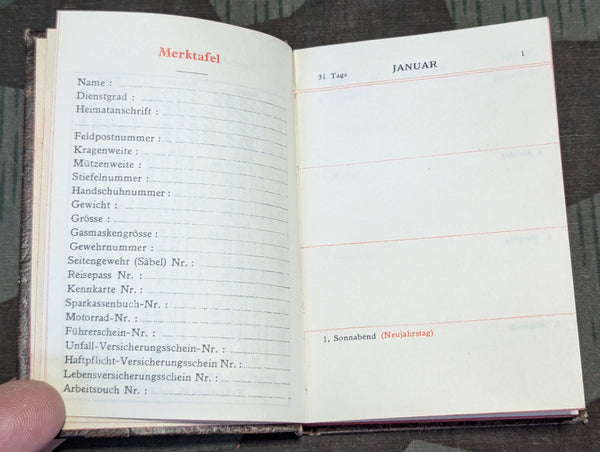 Merktafel
Name :
Dienstgrad :
Heimatanschrift :
Feldpostnummer :
Kragenweite :
Mützenweite :
Stiefelnummer :
Handschuhnummer :
Gewicht :
Grösse :
Gasmaskengrösse :
Gewehrnummer :
Seitengewehr (Säbel) Nr. :
Reisepass Nr. :
Kennkarte Nr. :
Sparkassenbuch-Nr. :
Motorrad-Nr. :
Führerschein-Nr. :
Unfall-Versicherungsschein-Nr. :
Haftpflicht-Versicherungsschein Nr. :
Lebensversicherungsschein Nr. :
Arbeitsbuch Nr. :
31 Tage JANUAR 1
1, Sonnabend (Neujahrstag)